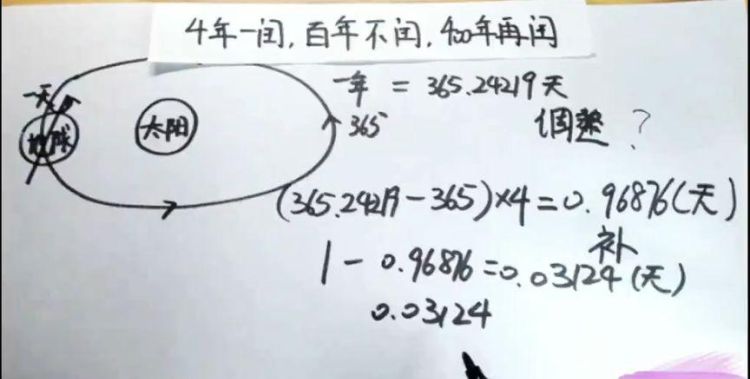 4年一闰，百年不闰，400年再闰
一天
地球
太阳
一年 = 365.24219天
365
调整？
(365.24219-365)×4=0.96876(天)
补
1-0.96876=0.03124(天)
0.03124